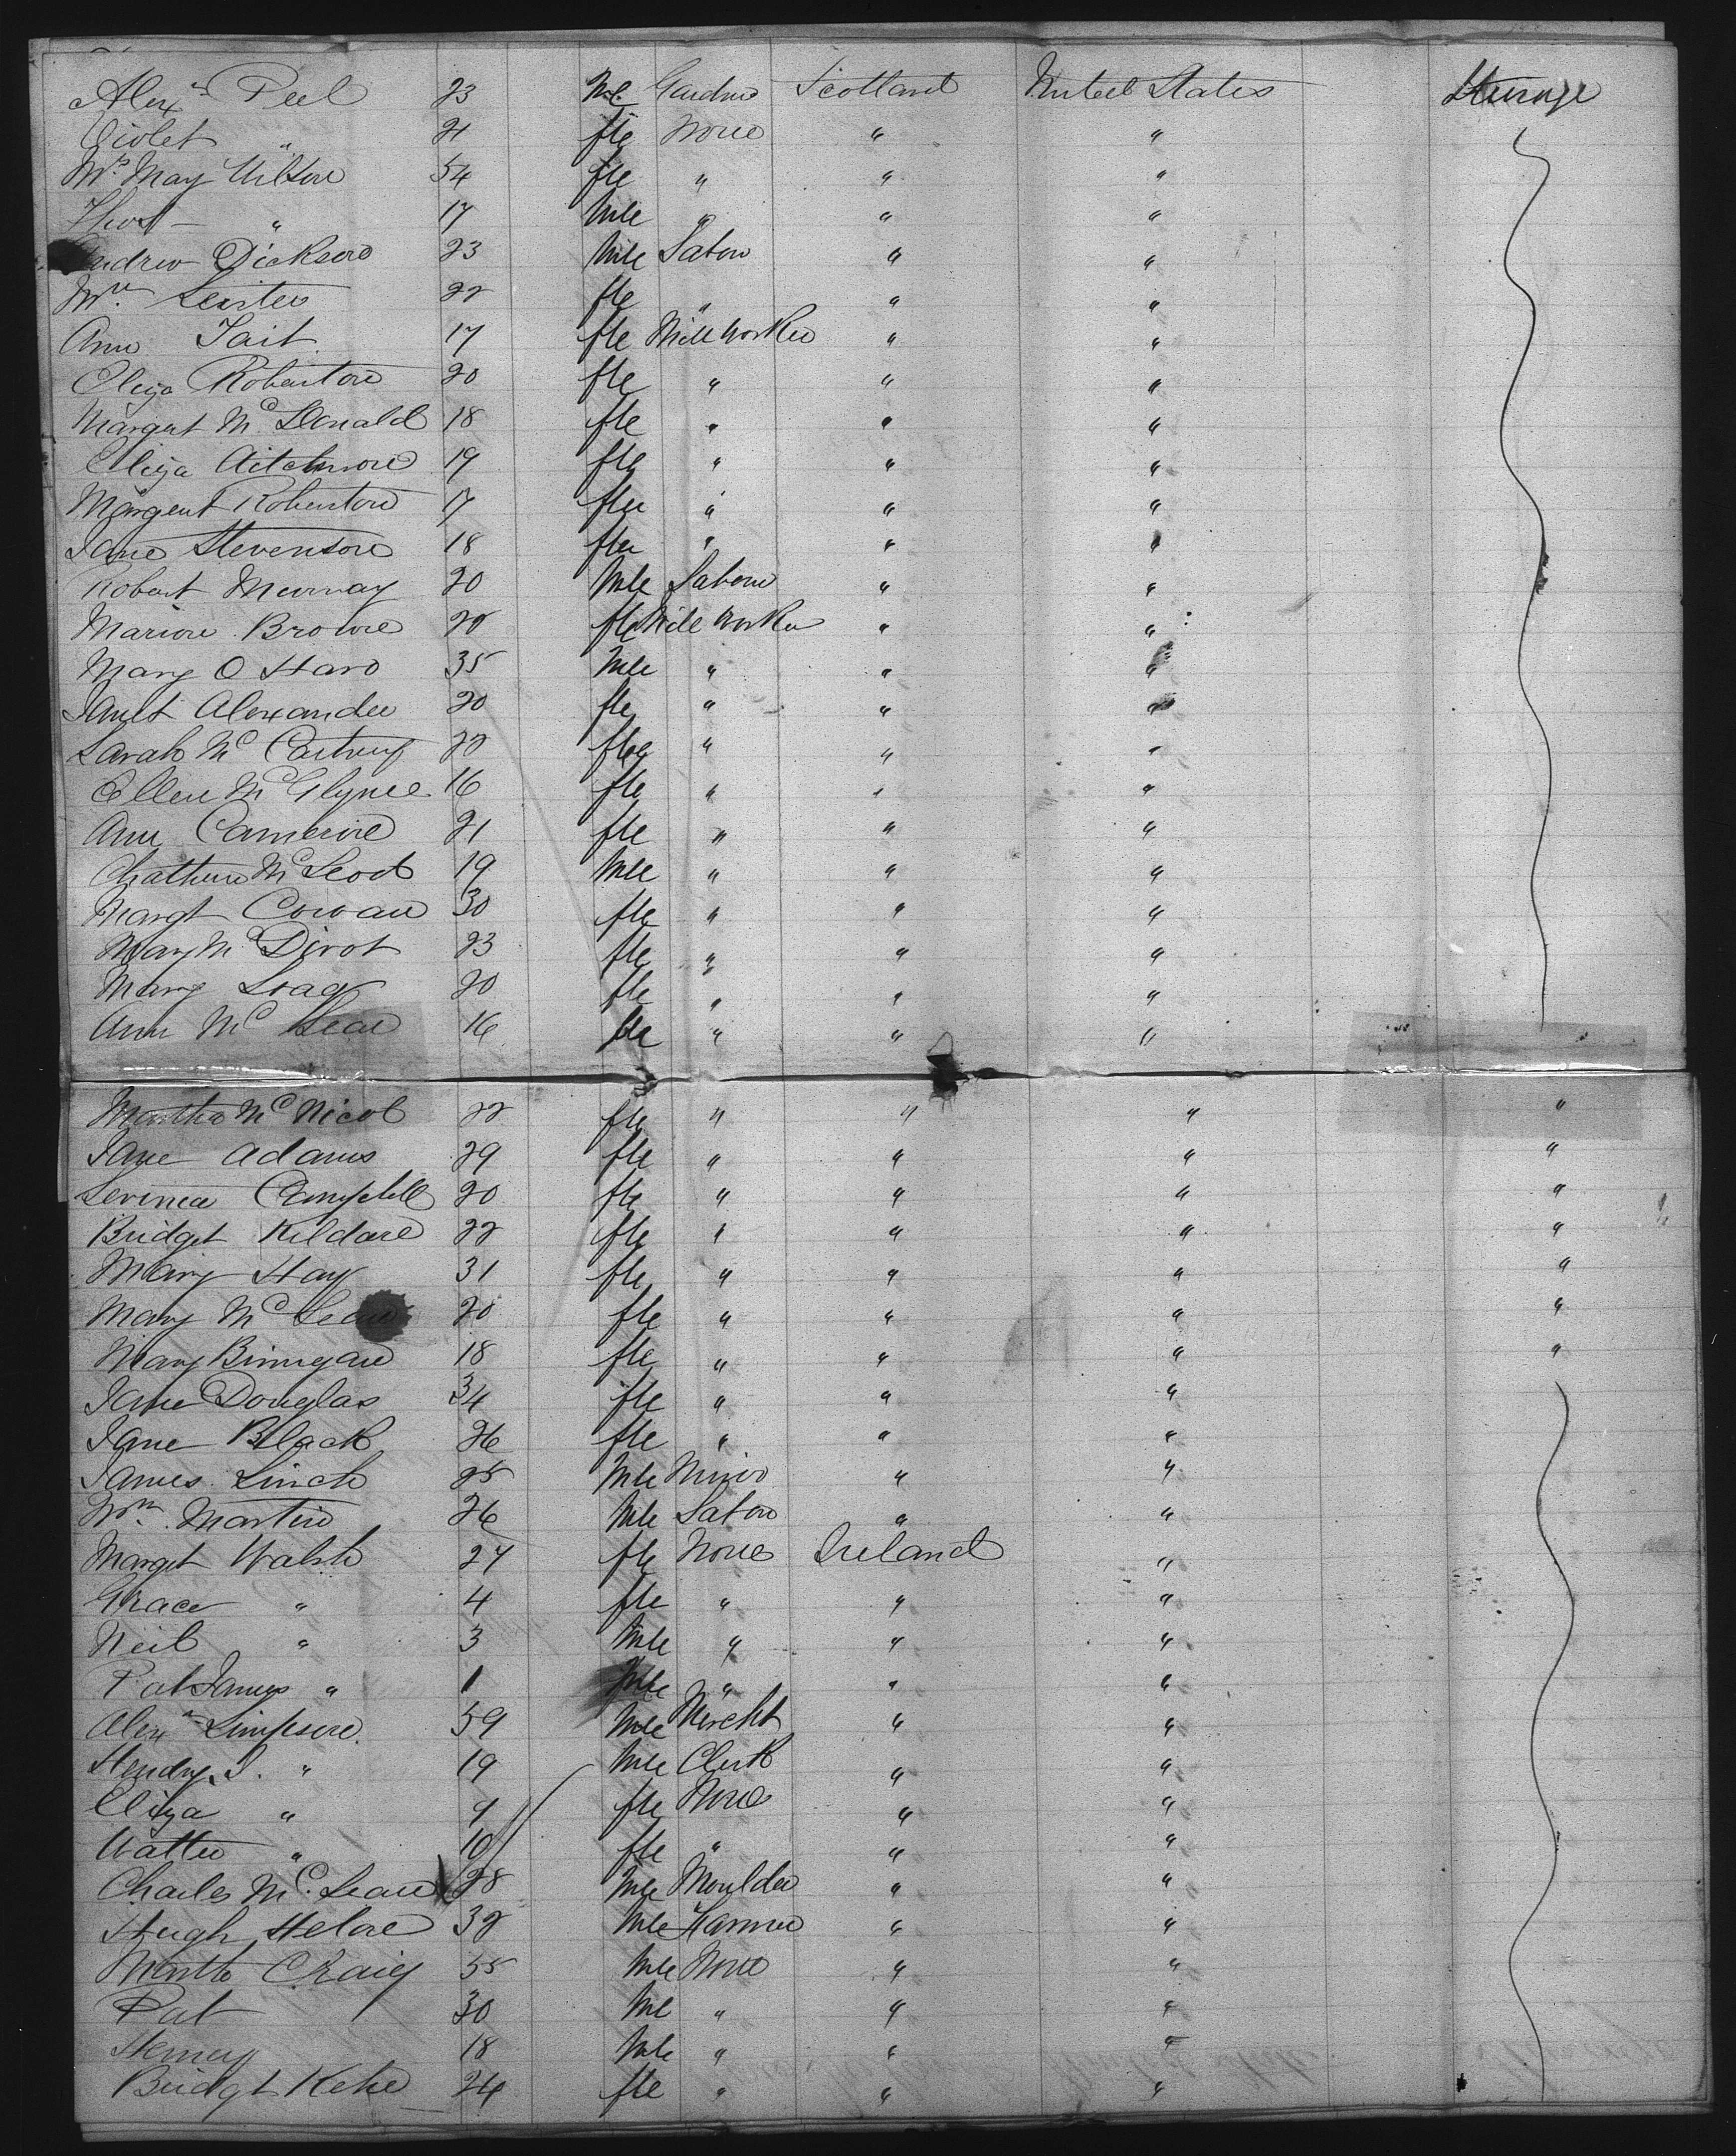 Alexr Peel 23 Mle Gardner Scotland United States Steerage
Violet " 21 fle None " "
Mrs May Wilson 54 fle " " "
Thos — " 17 Mle " " "
Andrew Dickson 23 Mle Labor " "
Wm 22 fle " " "
Ann Tait 17 fle Mill Worker " "
Eliza Roberton 20 fle " " "
Margert McDonald 18 fle " " "
Eliza Aitchison 19 fle " " "
Margert Roberton 17 fle " " "
Jane Stevenson 18 fle " " "
Robert Murray 20 Mle Labor " "
Marion Brown 20 fle Mill Worker " "
Mary O Hara 35 Mle " " "
Janet Alexander 20 fle " " "
Sarah McCartney 22 fle " " "
Ellen McGlynn 16 fle " " "
Ann Cameron 21 fle " " "
McLeod 19 Mle " " "
Margt Cowan 30 fle " " "
Mary McDivot 23 fle " " "
Mary 20 fle " " "
Ann McLean 16 fle " " "
Martha McNicol 22 fle " " " "
Jane Adams 29 fle " " " "
Levinia Campbell 20 fle " " " "
Bridget Kildare 22 fle " " " "
Mary Hay 31 fle " " " "
Mary McLean 20 fle " " " "
Mary Binnigan 18 fle " " " "
Jane Douglas 34 fle " " "
Jane Black 26 fle " " "
James Linch 25 Mle Miner " "
Wm Martin 26 Mle Labor " "
Marget Walsh 27 fle None Ireland "
Grace " 4 fle " " "
Neil " 3 Mle " " "
Pat James " 1 Mle " " "
Alexr Simpson 59 Mle Mercht " "
Hendry S. " 19 Mle Clerk " "
Eliza " 9 fle None " "
Walter " 10 fle " " "
Charles McLean 28 Mle Moulder " "
Hugh 32 Mle Farmer " "
Craig 55 Mle None " "
Pat 30 Mle " " "
Henry 18 Mle " " "
Bridgt Kehe 24 fle " " "